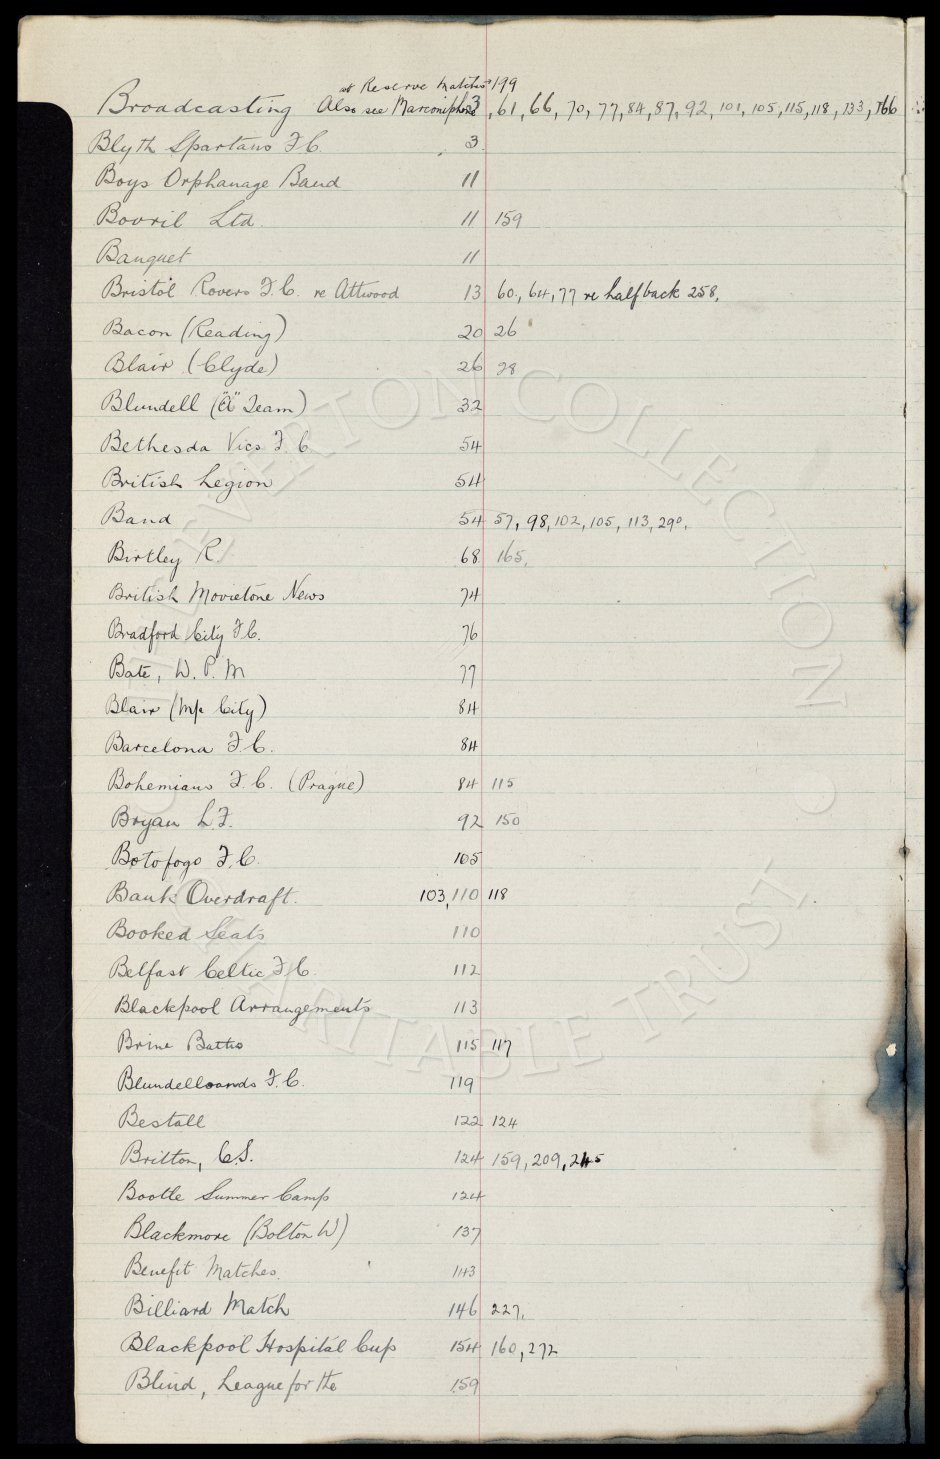 at Reserve Matches 199
Broadcasting Also see Marconiphone 3, 61, 66, 70, 77, 84, 87, 92, 101, 105, 115, 118, 133, 166
Blyth Spartans F.C. 3
Boys Orphanage Band 11
Bovril Ltd. 11 159
Banquet 11
Bristol Rovers F.C. re Attwood 13 60, 64, 77 re halfback 258,
Bacon (Reading) 20 26
Blair (Clyde) 26 28
Blundell ("A" Team) 32
Bethesda Vics F.C. 54
British Legion 54
Band 54 57, 98, 102, 105, 113, 290,
Birtley R. 68 165,
British Movietone News 74
Bradford City F.C. 76
Bate, W. P. M 77
Blair (M/c City) 84
Barcelona F.C. 84
Bohemians F.C. (Prague) 84 115
Bryan L.F. 92 150
Botofogo F.C. 105
Bank Overdraft. 103, 110 118
Booked Seats 110
Belfast Celtic F.C. 112
Blackpool Arrangements 113
Brine Baths 115 117
Blundellsands F.C. 119
Bestall 122 124
Britton, C.S. 124 159, 209, 245
Bootle Summer Camp 124
Blackmore (Bolton W) 137
Benefit Matches. 143
Billiard Match 146 227,
Blackpool Hospital Cup 154 160, 272
Blind, League for the 159
THE EVERTON COLLECTION
CHARITABLE TRUST